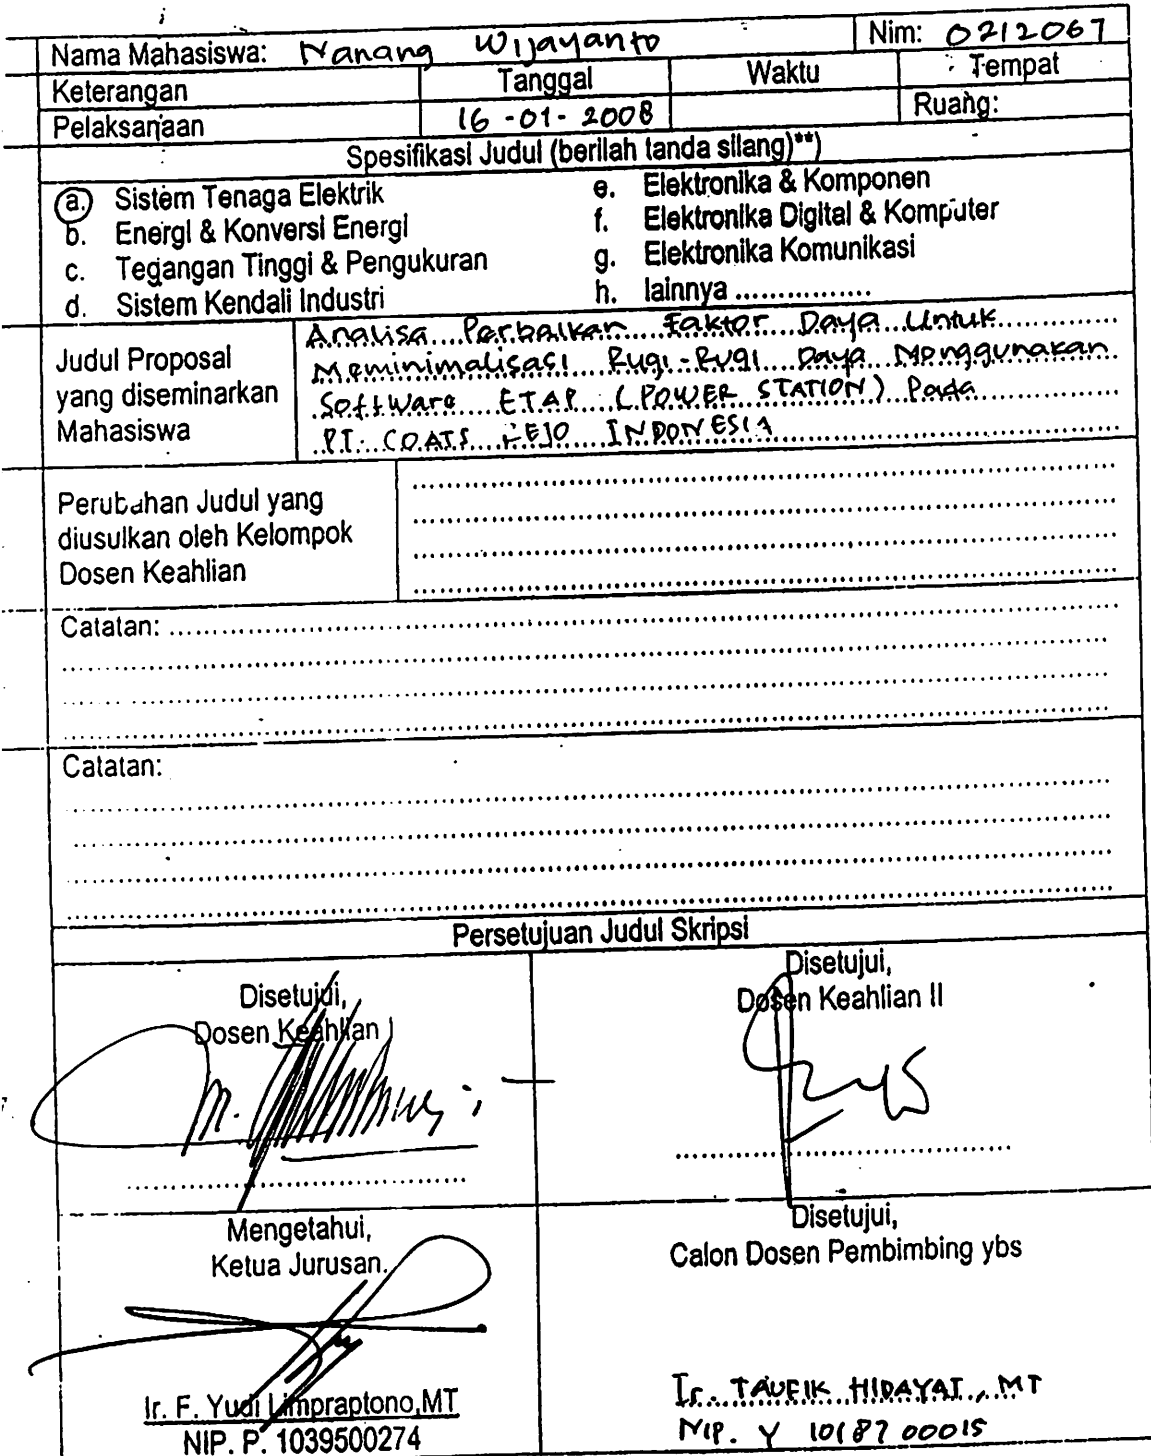 Nama Mahasiswa: Nanang Wijayanto Nim: 0212067
Keterangan Tanggal Waktu Tempat
Pelaksanaan 16-01-2008 Ruang:
Spesifikasi Judul (berilah tanda silang)**)
a. Sistem Tenaga Elektrik
b. Energi & Konversi Energi
c. Tegangan Tinggi & Pengukuran
d. Sistem Kendali Industri
e. Elektronika & Komponen
f. Elektronika Digital & Komputer
g. Elektronika Komunikasi
h. lainnya ...............
Judul Proposal
yang diseminarkan
Mahasiswa
Analisa Perbaikan Faktor Daya Untuk
Meminimalisasi Rugi-Rugi Daya Menggunakan
Software ETAP (POWER STATION) Pada
PT. COATS REJO INDONESIA
Perubahan Judul yang
diusulkan oleh Kelompok
Dosen Keahlian
Catatan:
Catatan:
Persetujuan Judul Skripsi
Disetujui,
Dosen Keahlian I
Disetujui,
Dosen Keahlian II
Mengetahui,
Ketua Jurusan.
Ir. F. Yudi Limpraptono,MT
NIP. P. 1039500274
Disetujui,
Calon Dosen Pembimbing ybs
Ir. TAUFIK HIDAYAT, MT
NIP. Y 1018700015